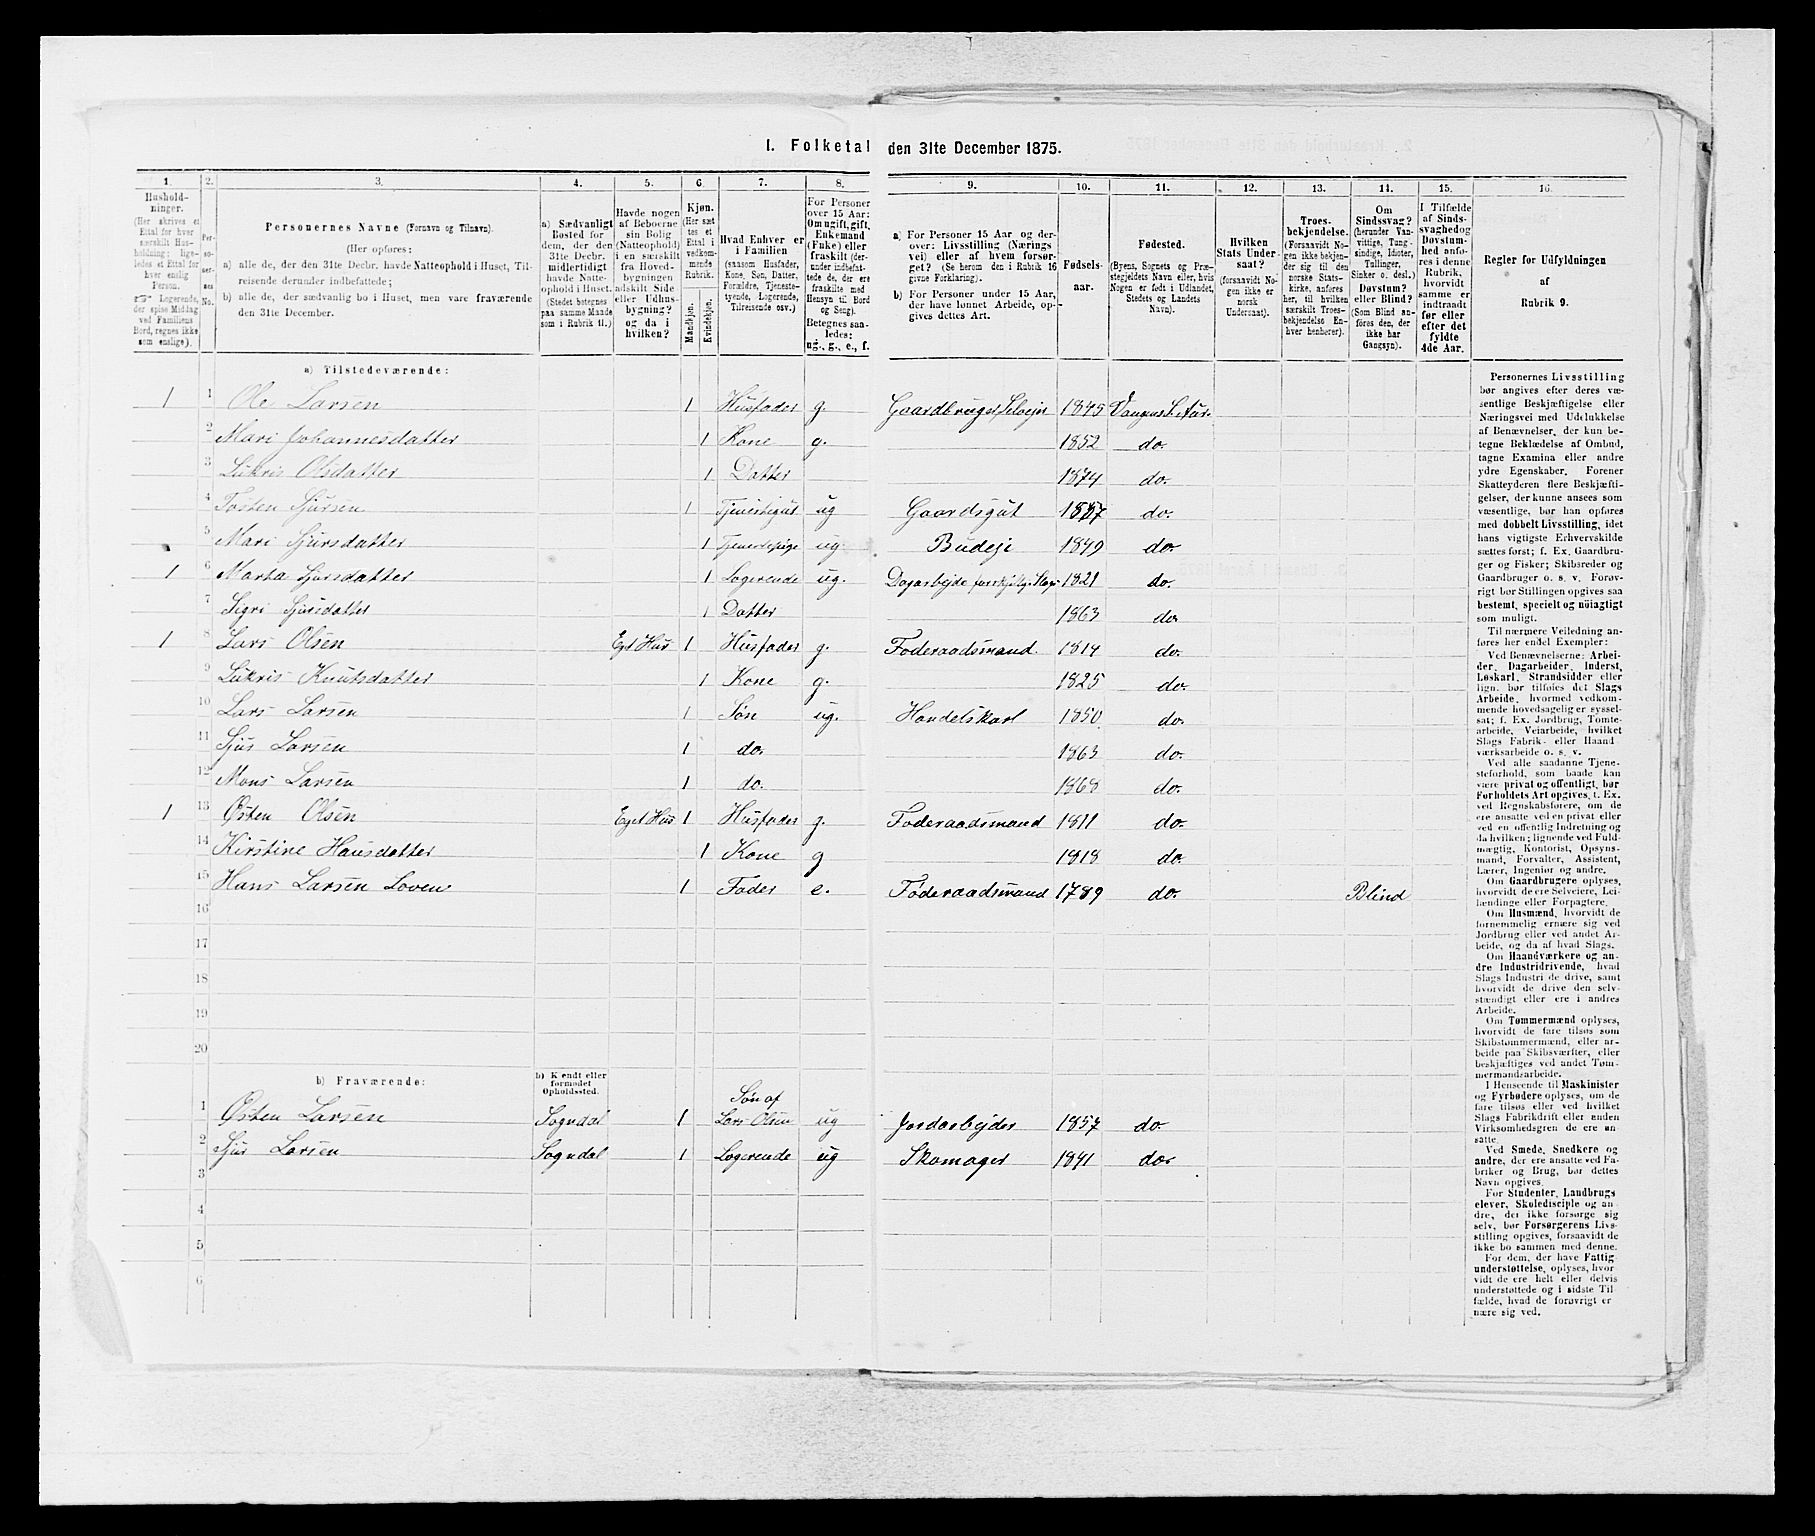 I. Folketal den 31te December 1875.
1. 2. 3. 4. 5. 6. 7. 8. 9. 10. 11. 12. 13. 14. 15. 16.
Hushold-
ninger.
(Her skrives et
Ettal for hver
særskilt Hus-
holdning; lige-
ledes et Ettal for
hver enslig
Person.
Logerende,
der spise Middag
ved Familiens
Bord, regnes ikke
som enslige).
Per-
so-
ner-
nes
No.
Personernes Navne (Fornavn og Tilnavn).
(Her opføres:
a) alle de, der den 31te Decbr. havde Natteophold i Huset, Til-
reisende derunder indbefattede;
b) alle de, der sædvanlig bo i Huset, men vare fraværende
den 31te December.
a) Sædvanligt
Bosted for
dem, der den
31te Decbr.
midlertidigt
havde Natte-
ophold i Huset.
(Stedet betegnes
paa samme Maade
som i Rubrik 11.)
Havde nogen
af Beboerne
sin Bolig
(Natteophold)
i en særskilt
fra Hoved-
bygningen
adskilt Side
eller Udhus-
bygning?
og da i
hvilken?
Kjøn.
(Her sæt-
tes et
Ettal i
vedkom-
mende
Rubrik.
Mandkjøn.
Kvindekjøn.
Hvad Enhver er
i Familien
(saasom Husfader,
Kone, Søn, Datter,
Forældre, Tjeneste-
tyende, Logerende,
Tilreisende osv.)
For Personer
over 15 Aar:
Om ugift, gift,
Enkemand
(Enke) eller
fraskilt (der-
under indbefat-
tede de, der ere
fraskilte med
Hensyn til Bord
og Seng).
Betegnes saa-
ledes:
ug., g., e., f.
a) For Personer 15 Aar og der-
over: Livsstilling (Nærings
vei) eller af hvem forsør-
get? (Se herom den i Rubrik 16
givne Forklaring).
b) For Personer under 15 Aar,
der have lønnet Arbeide, op-
gives dettes Art.
Fødsels-
aar.
Fødested.
(Byens, Sognets og Præ-
stegjeldets Navn eller, hvis
Nogen er født i Udlandet,
Stedets og Landets
Navn).
Hvilken
Stats Under-
saat?
(forsaavidt No-
gen ikke er
norsk
Undersaat).
Troes-
bekjendelse.
(Forsaavidt No-
gen ikke bekjen-
der sig til den
norske Stats-
kirke, anføres
her, til hvilken
særskilt Troes-
bekjendelse En-
hver henhører).
Om
Sindssvag?
(herunder Van-
vittige, Tung-
sindige, Idioter,
Tullinger,
Sinker o. desl.)
Døvstum?
eller Blind?
(Som Blind an-
føres den, der
ikke har
Gangsyn).
I Tilfælde
af Sinds-
svaghed og
Døvstum-
hed anfø-
res i denne
Rubrik,
hvorvidt
samme er
indtraadt
før eller
efter det
fyldte
4de Aar.
Regler for Udfyldningen
af
Rubrik 9.
a) Tilstedeværende:
1 1 Ole Larsen 1 Husfader g. Gaardbruger Selveier 1845 Vangens
2 Mari Johannesdatter 1 Kone g. 1852 do.
3 Lukris Olsdatter 1 Datter 1874 do.
4 Tosten Sjursen 1 Tjenestegut ug Gaardsgut 1857 do.
5 Mari Sjursdatter 1 Tjenestepige ug. Budeje 1849 do.
1 6 Marta Sjursdatter 1 Logerende ug. Dagarbejde forskjellige Slags 1821 do.
7 Sigri Sjursdatter 1 Datter 1863 do
1 8 Lars Olsen Eget Hus 1 Husfader g. Føderaadsmand 1814 do.
9 Lukris Knutsdatter 1 Kone g. 1825 do.
10 Lars Larsen 1 Søn ug. Handelskarl 1850 do.
11 Sjur Larsen 1 do. 1863 do.
12 Mons Larsen 1 do. 1868 do.
1 13 Østen Olsen Eget Hus 1 Husfader g. Føderaadsmand 1811 do.
14 Kirstine Hansdatter 1 Kone g 1818 do.
15 Hans Larsen Loven 1 Fader e. Føderaadsmand 1789 do. Blind
16
17
18
19
20
b) Fraværende:
b) Kjendt eller
formodet
Opholdssted.
1 Østen Larsen Sogndal 1 Søn af
Lars Olsen ug Jordarbejder 1857 do
2 Sjur Larsen Sogndal 1 Logerende ug Skomager 1841 do.
3
4
5
6
Personernes Livsstilling
bør angives efter deres væ-
sentlige Beskjæftigelse eller
Næringsvei med Udelukkelse
af Benævnelser, der kun be-
tegne Beklædelse af Ombud,
tagne Examina eller andre
ydre Egenskaber. Forener
Skatteyderen flere Beskjæfti-
gelser, der kunne ansees som
væsentlige, bør han opføres
med dobbelt Livsstilling, idet
hans vigtigste Erhvervskilde
sættes først; f. Ex. Gaardbru-
ger og Fisker; Skibsreder og
Gaardbruger o. s. v. Forøv-
rigt bør Stillingen opgives saa
bestemt, specielt og nøiagtigt
som muligt.
Til nærmere Veiledning an-
føres her endel Exempler:
Ved Benævnelserne: Arbei-
der, Dagarbeider, Inderst,
Løskarl, Strandsidder eller
lign. bør tilføies det Slags
Arbeide, hvormed vedkom-
mende hovedsagelig er syssel-
sat; f. Ex. Jordbrug, Tomte-
arbeide, Veiarbeide, hvilket
Slags Fabrik- eller Haand-
værksarbeide o. s. v.
Ved alle saadanne Tjene-
steforhold, som baade kan
være privat og offentligt, bør
Forholdets Art opgives, t. Ex.
ved Regnskabsførere, om de
ere ansatte ved en privat eller
ved en offentlig Indretning og
da hvilken; lignende ved Fuld-
mægtig, Kontorist, Opsyns-
mand, Forvalter, Assistent,
Lærer, Ingeniør og andre.
Om Gaardbrugere oplyses,
hvorvidt de ere Selveiere, Lei-
lændinge eller Forpagtere.
Om Husmænd, hvorvidt de
fornemmelig ernære sig ved
Jordbrug eller ved andet Ar-
beide, og da af hvad Slags.
Om Haandværkere og an-
dre Industridrivende, hvad
Slags Industri de drive, samt
hvorvidt de drive den selv-
stændigt eller ere i andres
Arbeide.
Om Tømmermænd oplyses,
hvorvidt de fare tilsøs som
Skibstømmermænd, eller ar-
beide paa Skibsværfter, eller
beskjæftiges ved andet Tøm-
mermandsarbeide.
I Henseende til Maskinister
og Fyrbødere oplyses, om de
fare tilsøs eller ved hvilket
Slags Fabrikdrift eller anden
Virksomhedsgren de ere an-
satte.
Ved Smede, Snedkere og
andre, der ere ansatte ved Fa-
briker og Brug, bør dettes
Navn opgives.
For Studenter, Landbrugs
elever, Skoledisciple og an-
dre, der ikke forsørge sig
selv, bør Forsørgerens Livs-
stilling opgives, forsaavidt de
ikke bo sammen med denne.
For dem, der have Fattig
understøttelse, oplyses, hvor-
vidt de ere helt eller delvis
understøttede og i sidste Til
fælde, hvad de forøvrigt er
nære sig ved.